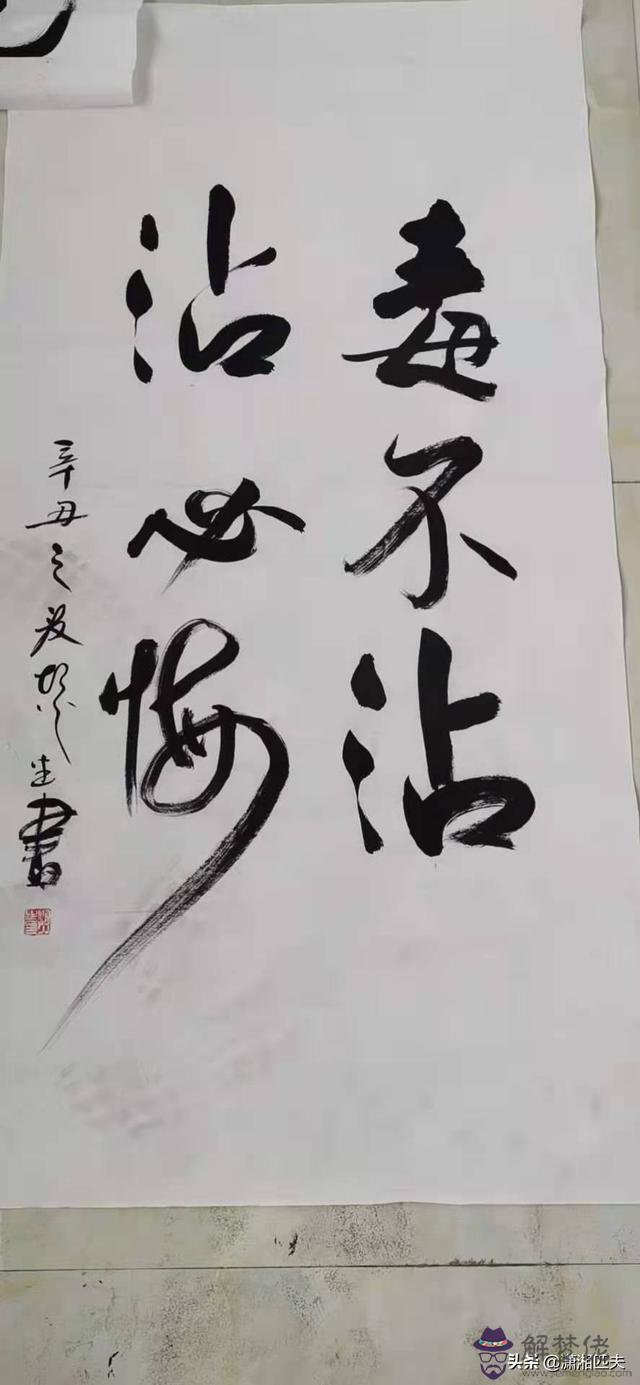 毒不沾
沾必悔
辛丑之夏
書
解梦佬
www.jiemenglao.com
头条 @潇湘匹夫